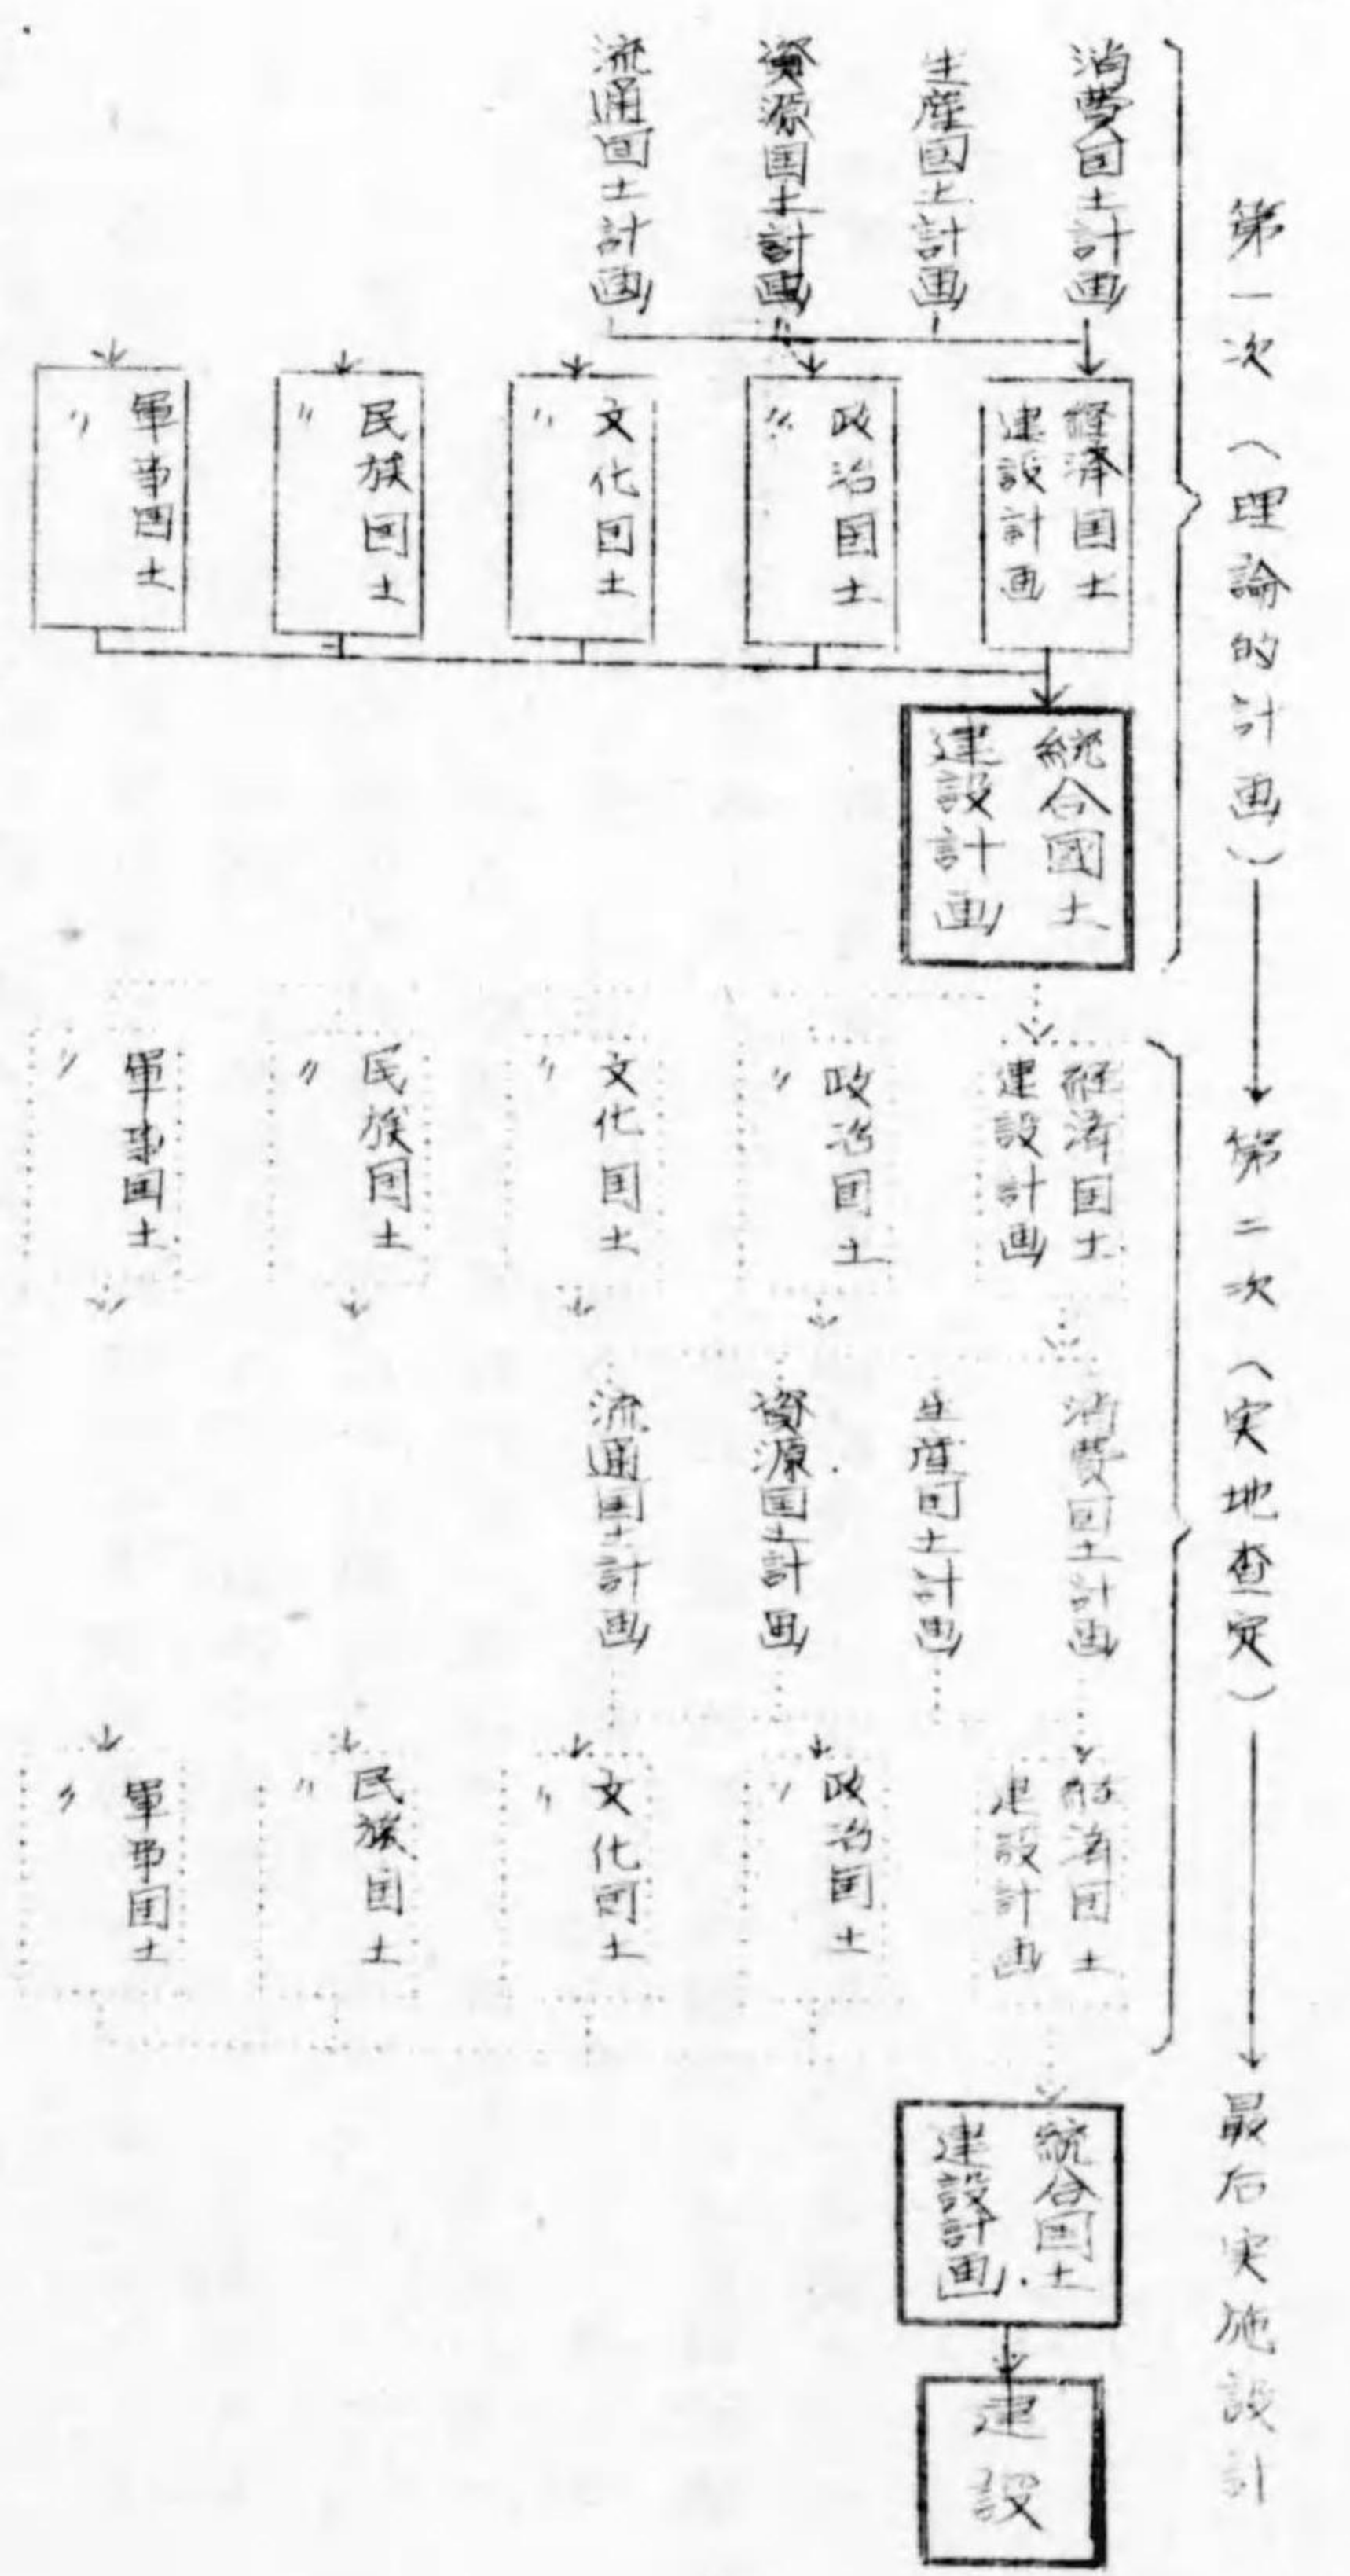 第一次（理論的計画）→第二次（実地査定）→最后実施設計
消費国土計画
生産国土計画
資源国土計画
流通国土計画
経済国土
建設計画
政治国土
〃
文化国土
〃
民族国土
〃
軍事国土
〃
統合國土
建設計画
経済国土
建設計画
政治国土
〃
文化国土
〃
民族国土
〃
軍事国土
〃
消費国土計画
生産国土計画
資源国土計画
流通国土計画
経済国土
建設計画
政治国土
〃
文化国土
〃
民族国土
〃
軍事国土
〃
統合国土
建設計画
建設